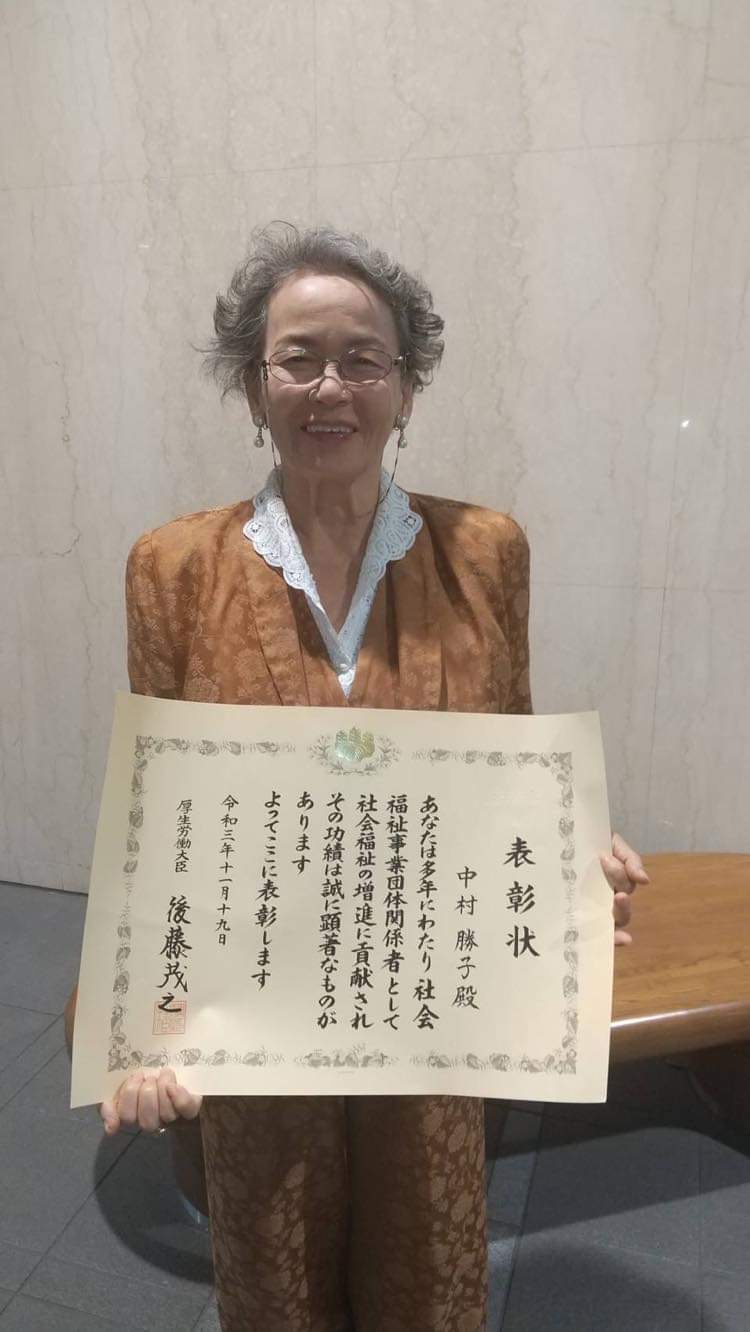 表彰状
中村勝子殿
あなたは多年にわたり社会
福祉事業団体関係者として
社会福祉の増進に貢献され
その功績は誠に顕著なものが
あります
よってここに表彰します
令和三年十一月十九日
厚生労働大臣 後藤茂之